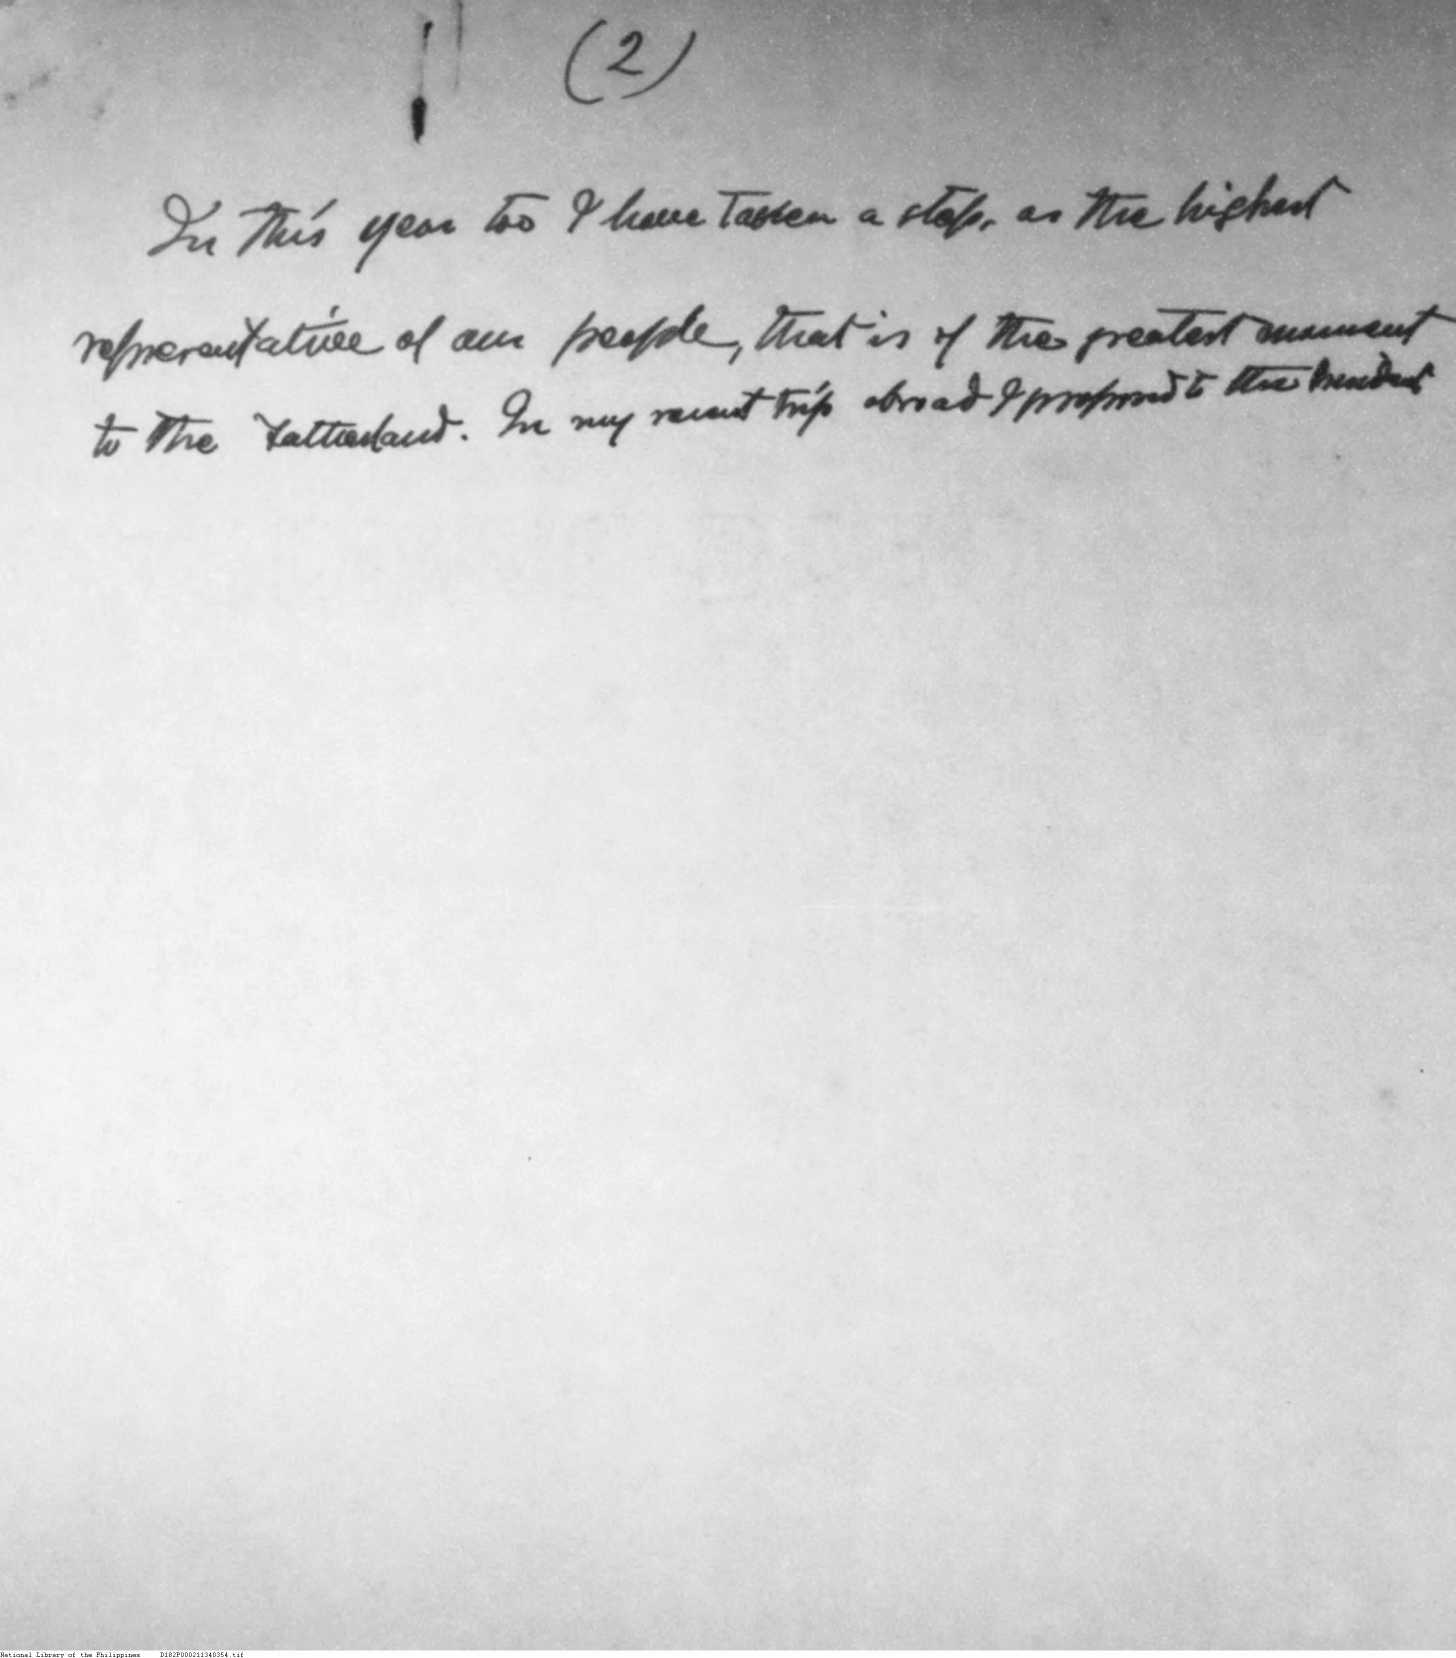 (2)
In this year too I have taken a step, as the highest
representative of our people, that is of the greatest moment
to the Fatherland. In my recent trip abroad I proposed to the President
National Library of the Philippines D182P000211340354.tif